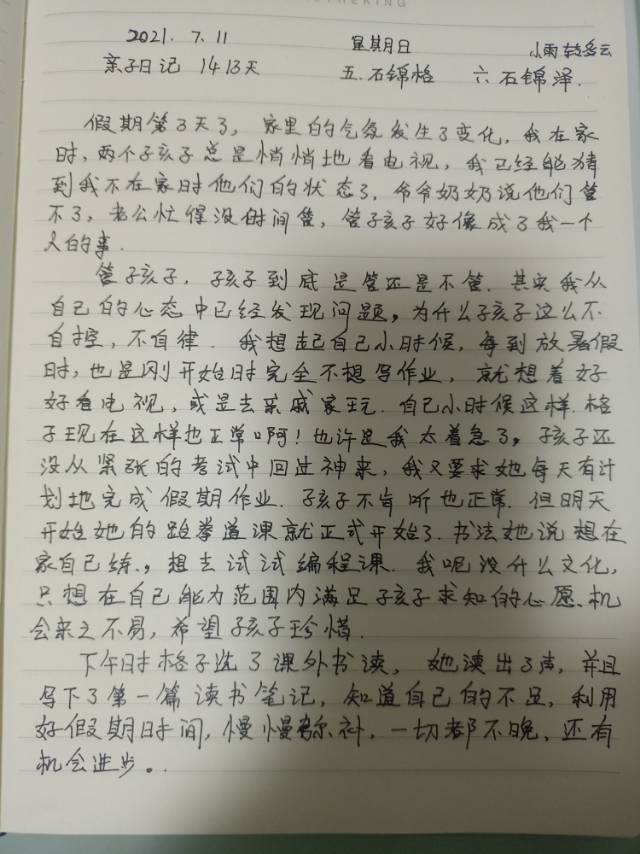 2021. 7. 11 星期日 小雨转多云
亲子日记 1413天 五.石锦格 六 石锦泽.
假期第3天了, 家里的气氛发生了变化, 我在家
时, 两个孩子总是悄悄地看电视, 我已经能猜
到我不在家时他们的状态了, 爷爷奶奶说他们管
不了, 老公忙得没时间管, 管孩子好像成了我一个
人的事.
管孩子, 孩子到底是管还是不管. 其实我从
自己的心态中已经发现问题, 为什么孩子这么不
自控, 不自律. 我想起自己小时候, 每到放暑假
时, 也是刚开始时完全不想写作业, 就想着好
好看电视, 或是去亲戚家玩. 自己小时候这样. 格
子现在这样也正常啊! 也许是我太着急了, 孩子还
没从紧张的考试中回过神来, 我又要求她每天有计
划地完成假期作业. 孩子不肯听也正常. 但明天
开始她的跆拳道课就正式开始了. 书法她说想在
家自己练., 想去试试编程课. 我呢没什么文化,
只想在自己能力范围内满足孩子求知的心愿. 机
会来之不易, 希望孩子珍惜.
下午时格子选了课外书读, 她读出了声, 并且
写下了第一篇读书笔记, 知道自己的不足, 利用
好假期时间, 慢慢弥补, 一切都不晚, 还有
机会进步。